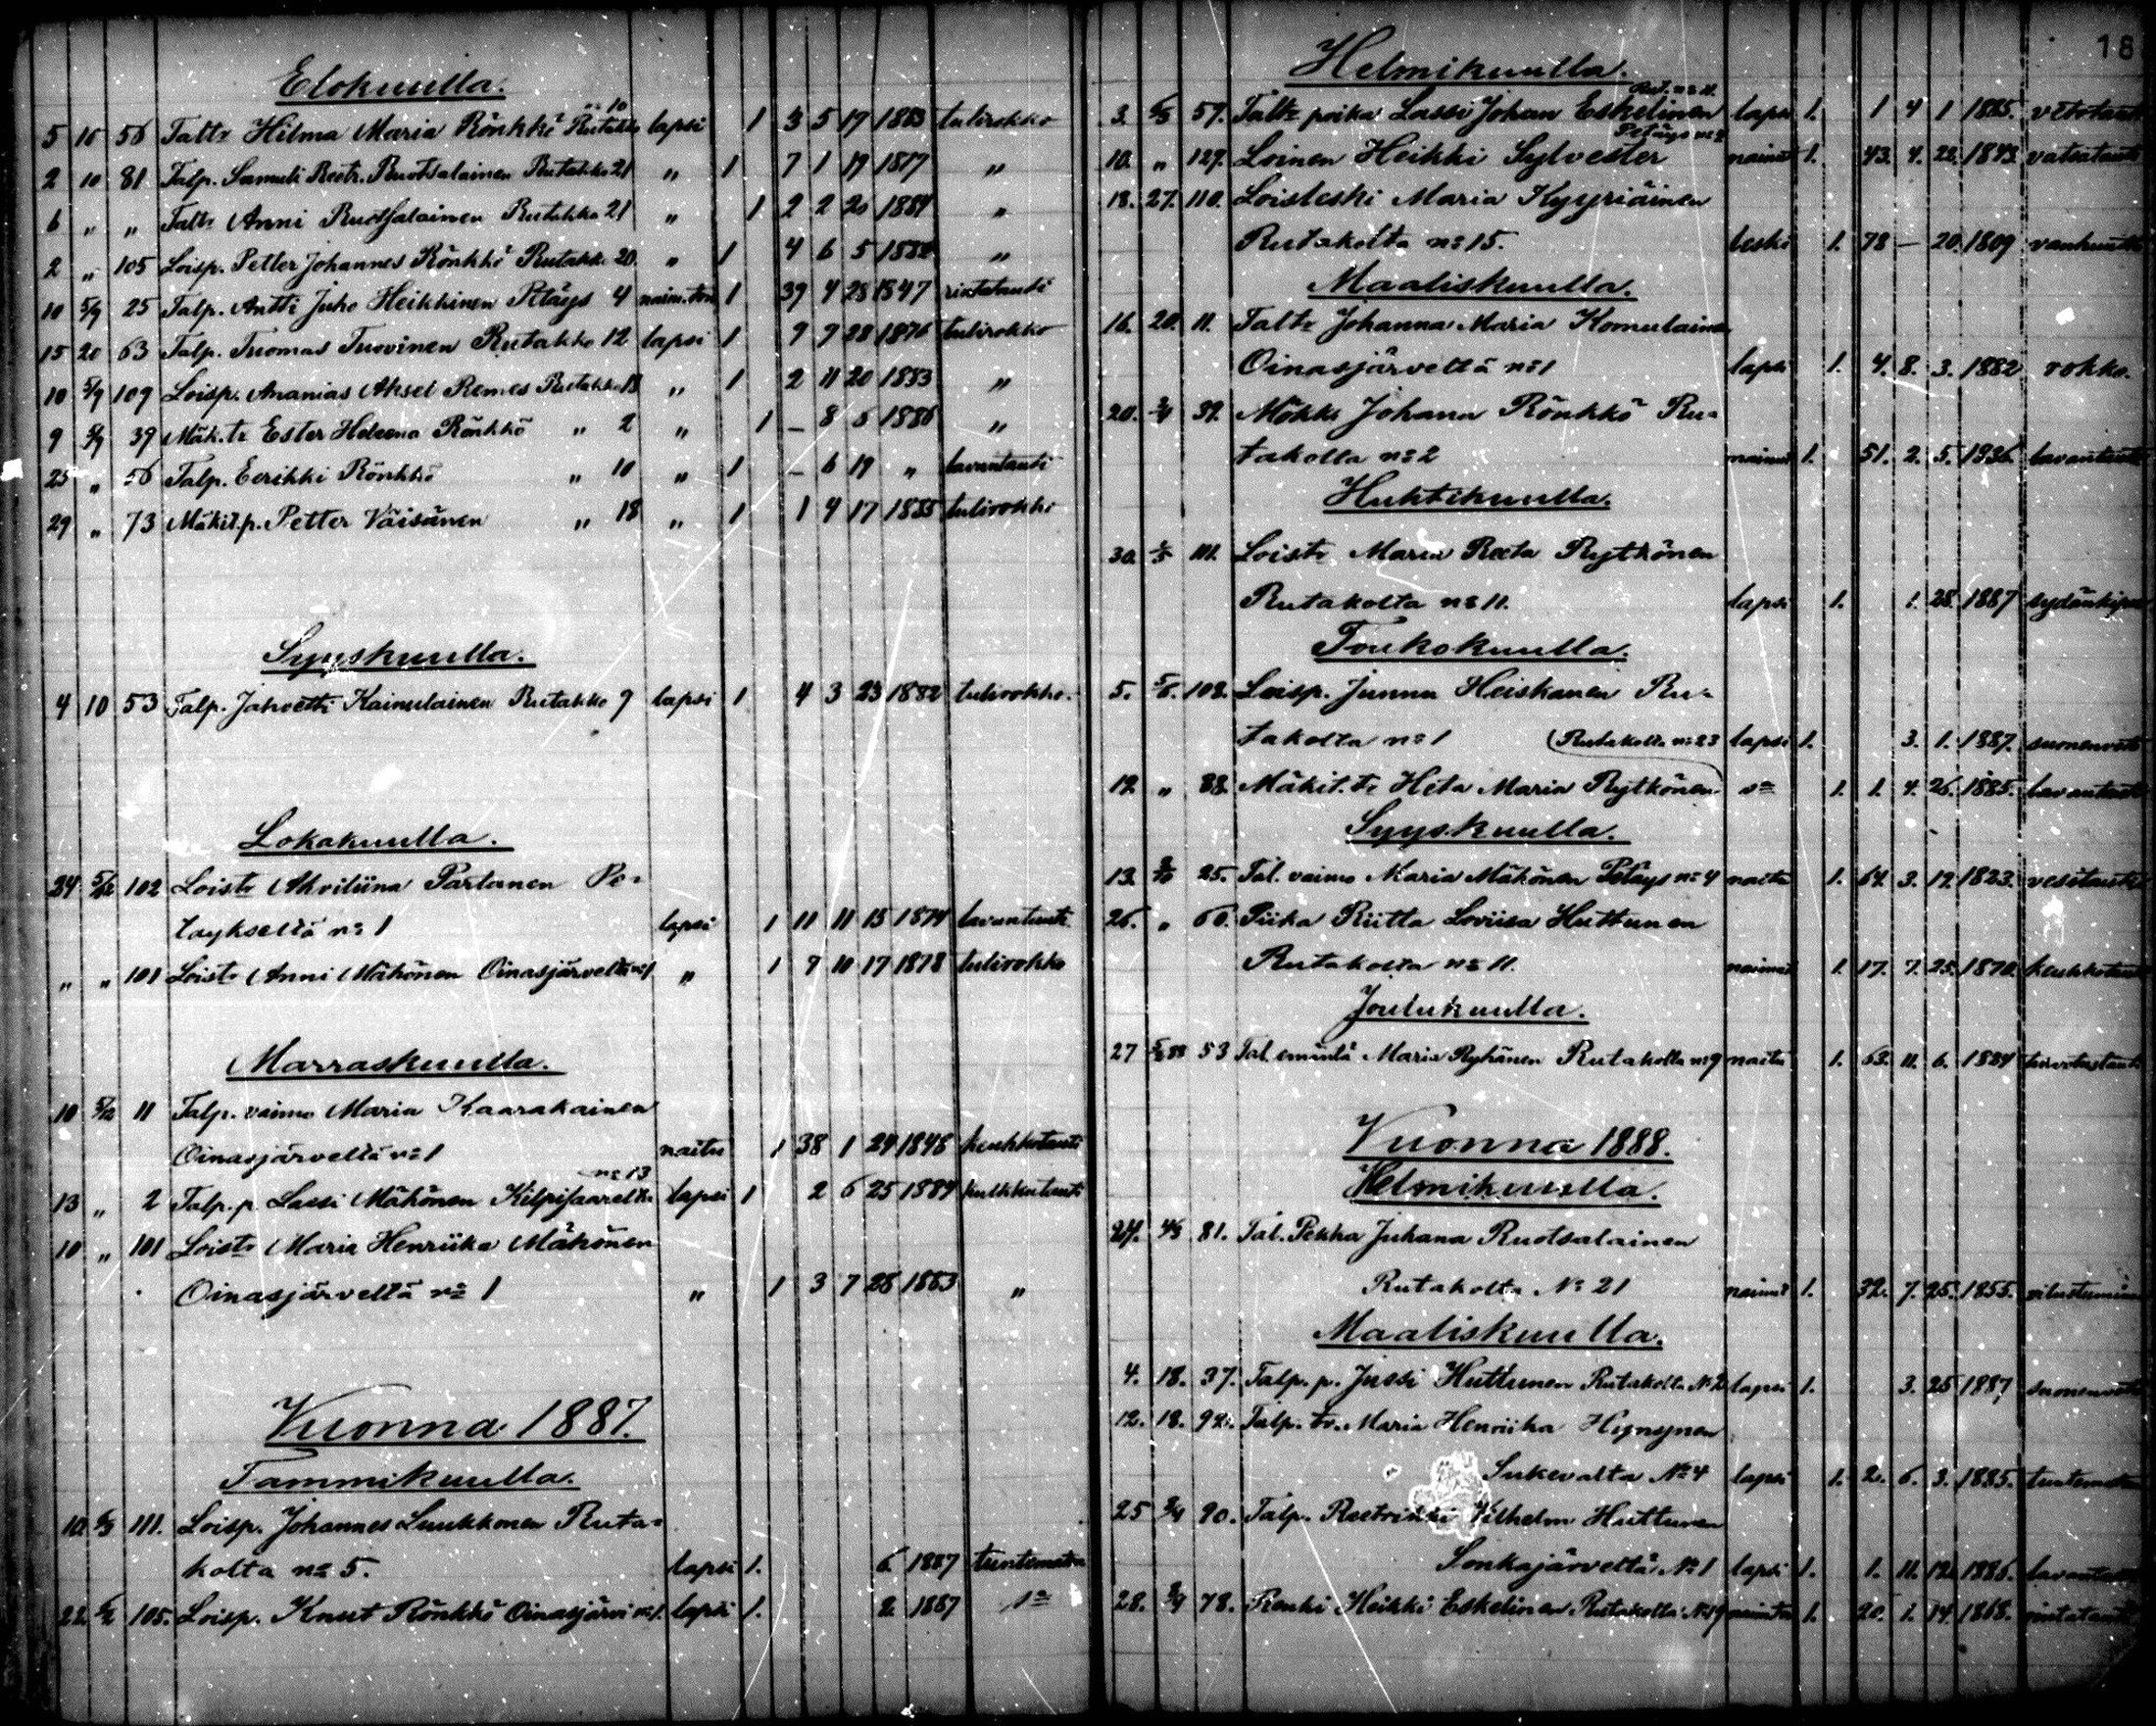 Elokuulla.
nö 10
5 16 56 Taltr Hilma Maria Rönkkö Rutakko lapsi 1 3 5 19 1883 tulirokko
2 10 81 Talp. Samuli Reetr. Ruotsalainen Rutakko 21 „ 1 7 1 19 1817 „
6 „ „ Taltr Anni Ruotsalainen Rutakko 21 „ 1 2 2 20 1884 „
2 „ 105 Loisp. Petter Johannes Rönkkö Rutakko 20. „ 1 4 6 5 1882 „
10 5/9 25 Talp. Antti Juho Heikkinen Petäys 4 naim.ton 1 39 4 28 1847 rintatauti
15 20 63 Talp. Tuomas Tuovinen Rutakko 12 lapsi 1 9 7 28 1876 tulirokko
10 5/9 109 Loisp. Ananias Aksel Remes Rutakko 18 „ 1 2 11 20 1883 „
9 5/9 39 Mäk.tr Ester Helena Rönkkö „ 2 „ 1 – 8 6 1886 „
25 „ 56 Talp. Eerikki Rönkkö „ 10 „ 1 – 6 19 „ lavantauti
29 „ 73 Mäkit.p. Petter Väisänen „ 18 „ 1 1 4 17 1885 tulirokko
Syyskuulla.
4 10 53 Talp. Jahvetti Kainulainen Rutakko 9 lapsi 1 4 3 23 1882 tulirokko.
Lokakuulla.
24 5/12 102 Loistr Akviliina Partanen Pe-
täykseltä nö 1 lapsi 1 11 11 15 1874 lavantauti
„ „ 101 Loistr Anni Mähönen Oinasjärveltä nö 1 „ 1 7 10 17 1878 tulirokko
Marraskuulla.
10 5/12 11 Talp. vaimo Maria Kaarakainen
Oinasjärveltä nö 1 naitu 1 38 1 24 1848 keuhkotauti
nö 13
13 „ 2 Talp. p. Lassi Mähönen Kilpisaarelta lapsi 1 2 6 25 1884 kulkkutauti
10 „ 101 Loistr Maria Henriika Mähönen
Oinasjärveltä nö 1 „ 1 3 7 28 1883 „
Vuonna 1887.
Tammikuulla.
10. 6/2 111. Loisp. Johannes Luukkonen Ruta-
kolta nö 5. lapsi 1. 6 1887 tuntematon
22. 6/2 105. Loisp. Knut Rönkkö Oinasjärvi nö 1. lapsi 1. 2 1887
18
Helmikuulla.
Rut. nö 11.
3. 6/3 57. Taltr poika Lassi Johan Eskelinen lapsi 1. 1 4 1 1885.
Petäys nö 2
10. „ 127. Loinen Heikki Sylvester nainut 1. 43. 4. 22. 1843. vatsatauti
18. 27. 110. Loisleski Maria Kyyriäinen
Rutakolta nö 15. leski 1. 78 – 20. 1809 vanhuutta
Maaliskuulla.
16. 20. 11. Taltr Johanna Maria Komulainen
Oinasjärveltä nö 1 lapsi 1. 4. 8. 3. 1882 rokko.
20. 2/4 39. Mökk. Johana Rönkkö Ru-
takolla nö 2 nainut 1. 51. 2. 5. 1836. lavantauti
Huhtikuulla.
30. 1/5 111. Loistr Maria Reeta Rytkönen
Rutakolta nö 11. lapsi 1. 1. 28. 1887 sydänkipu
Toukokuulla.
5. 5/6. 102. Loisp. Junnu Heiskanen Ru-
takolta nö 1 lapsi 1. 3. 1. 1887. suonenveto
(Rutakolta nö 23
19. „ 38. Mäkit. tr Heta Maria Rytkönen 1. 1. 4. 26. 1885. lavantauti
Syyskuulla.
13. 2/10 25. Tal. vaimo Maria Mähönen Petäys nö 4 naitu 1. 64. 3. 12. 1823. vesitauti
26. „ 60. Piika Riitta Loviisa Huttunen
Rutakolta nö 11. 1. 17. 7. 25. 1870. keuhkotauti
Joulukuulla.
27 53 Tal. emäntä Maria Ryhänen Rutakolla nö 9 naitu 1. 63. 11. 6. 1824
Vuonna 1888.
Helmikuulla.
24. 4/3 81. Tal. Pekka Juhana Ruotsalainen
Rutakolta No 21 nainut 1. 32. 7. 25. 1855. vilustuminen
Maaliskuulla.
4. 18. 37. Talp. p. Jussi Huttunen Rutakolta No 2 lapsi 1. 3. 25 1887 suonenveto
12. 18. 92. Talp. tr. Maria Henriika Hynynen
Sukevalta No 4 lapsi 1. 2. 6. 3. 1885. tuntematon
25 2/4 90. Talp. Reetrikki Vilhelm Huttunen
Sonkajärveltä No 1 lapsi 1. 1. 11. 12. 1886. lavantauti
28. 2/4 78. Renki Heikki Eskelinen Rutakolta No 19 naim.ton 1. 20. 1. 14. 1868. rintatauti